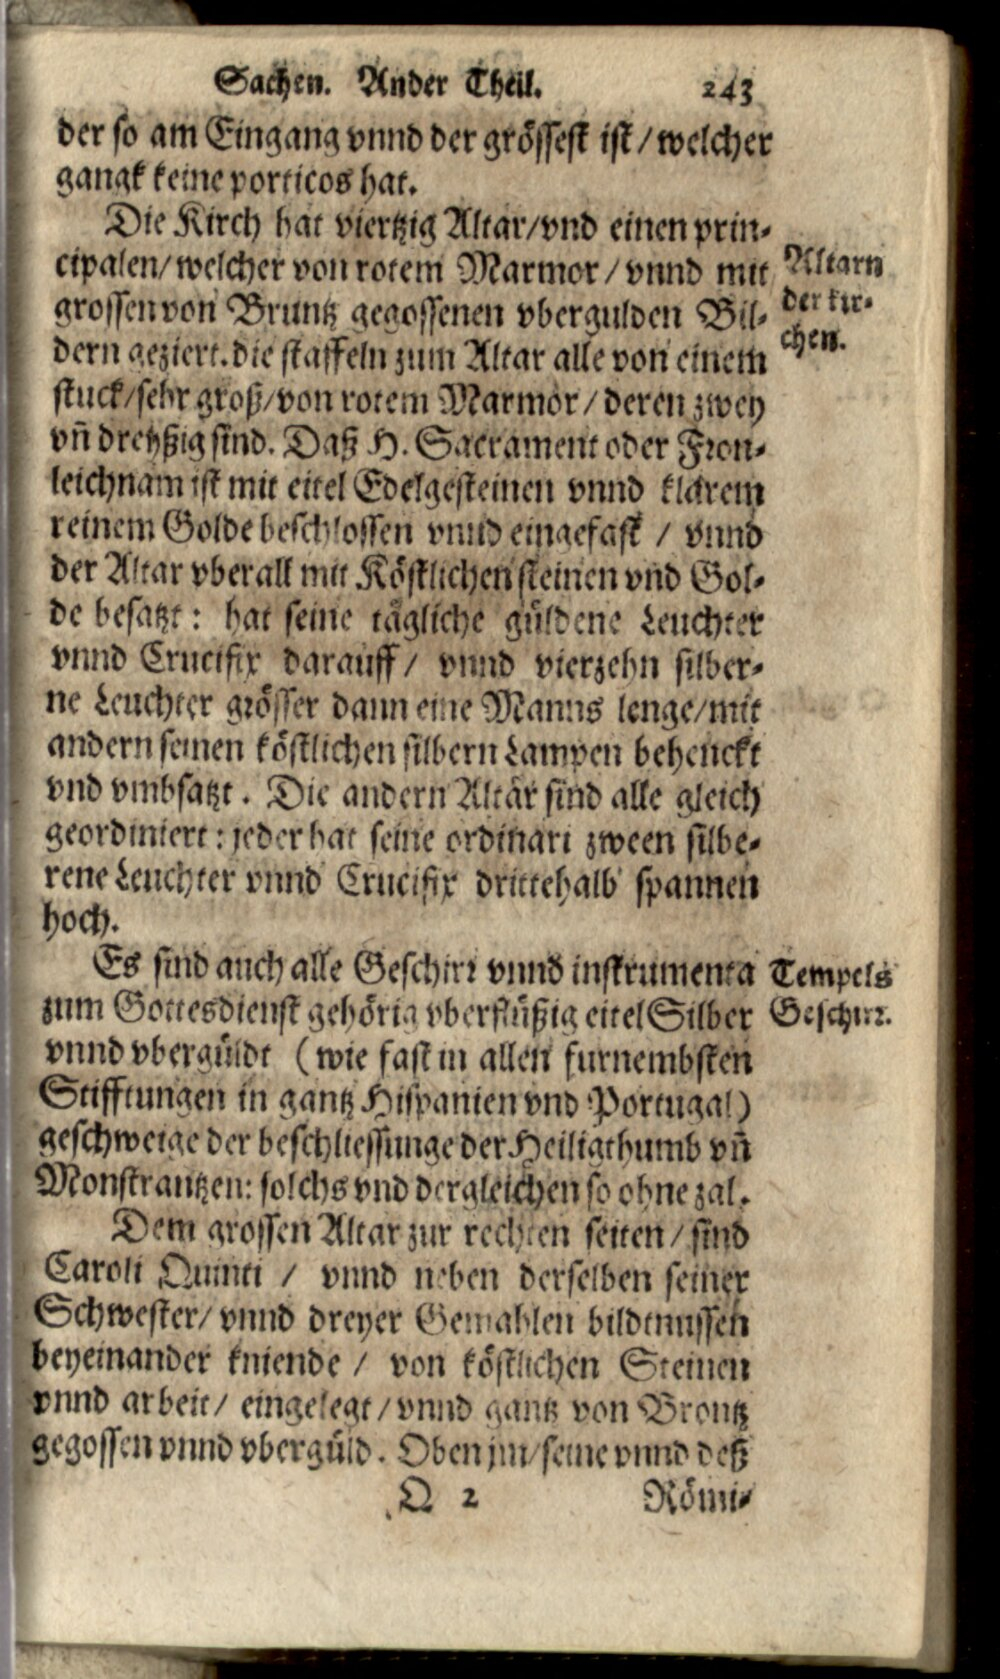 Sachen. Ander Theil. 243
der so am Eingang vnnd der grössest ist / welcher
gangk keine porticos hat.
Die Kirch hat viertzig Altar / vnd einen prin-
cipalen / welcher von rotem Marmor / vnnd mit
grossen von Bruntz gegossenen vbergulden Bil-
dern geziert. die staffeln zum Altar alle von einem
stuck / sehr groß / von rotem Marmor / deren zwey
vñ dreyßig sind. Daß H. Sacrament oder Fron-
leichnam ist mit eitel Edelgesteinen vnnd klarem
reinem Golde beschlossen vnnd eingefast / vnnd
der Altar vberall mit Köstlichen steinen vnd Gol-
de besatzt: hat seine tägliche güldene Leuchter
vnnd Crucifix darauff / vnnd vierzehn silber-
ne Leuchter grösser dann eine Manns lenge / mit
andern seinen köstlichen silbern Lampen behenckt
vnd vmbsatzt. Die andern Altär sind alle gleich
geordiniert: jeder hat seine ordinari zween silbe-
rene Leuchter vnnd Crucifix drittehalb spannen
hoch.
Es sind auch alle Geschirr vnnd instrumenta
zum Gottesdienst gehörig vberflüßig eitel Silber
vnnd vbergüldt (wie fast in allen furnembsten
Stifftungen in gantz Hispanien vnd Portugal)
geschweige der beschliessunge der Heiligthumb vñ
Monstrantzen: solchs vnd dergleichen so ohne zal.
Dem grossen Altar zur rechten seiten / sind
Caroli Quinti / vnnd neben derselben seiner
Schwester / vnnd dreyer Gemahlen bildtnussen
beyeinander kniende / von köstlichen Steinen
vnnd arbeit / eingelegt / vnnd gantz von Brontz
gegossen vnnd vbergüld. Oben jm / seine vnnd deß
Q 2 Römi-
Altarn
der kir-
chen.
Tempels
Geschirr.